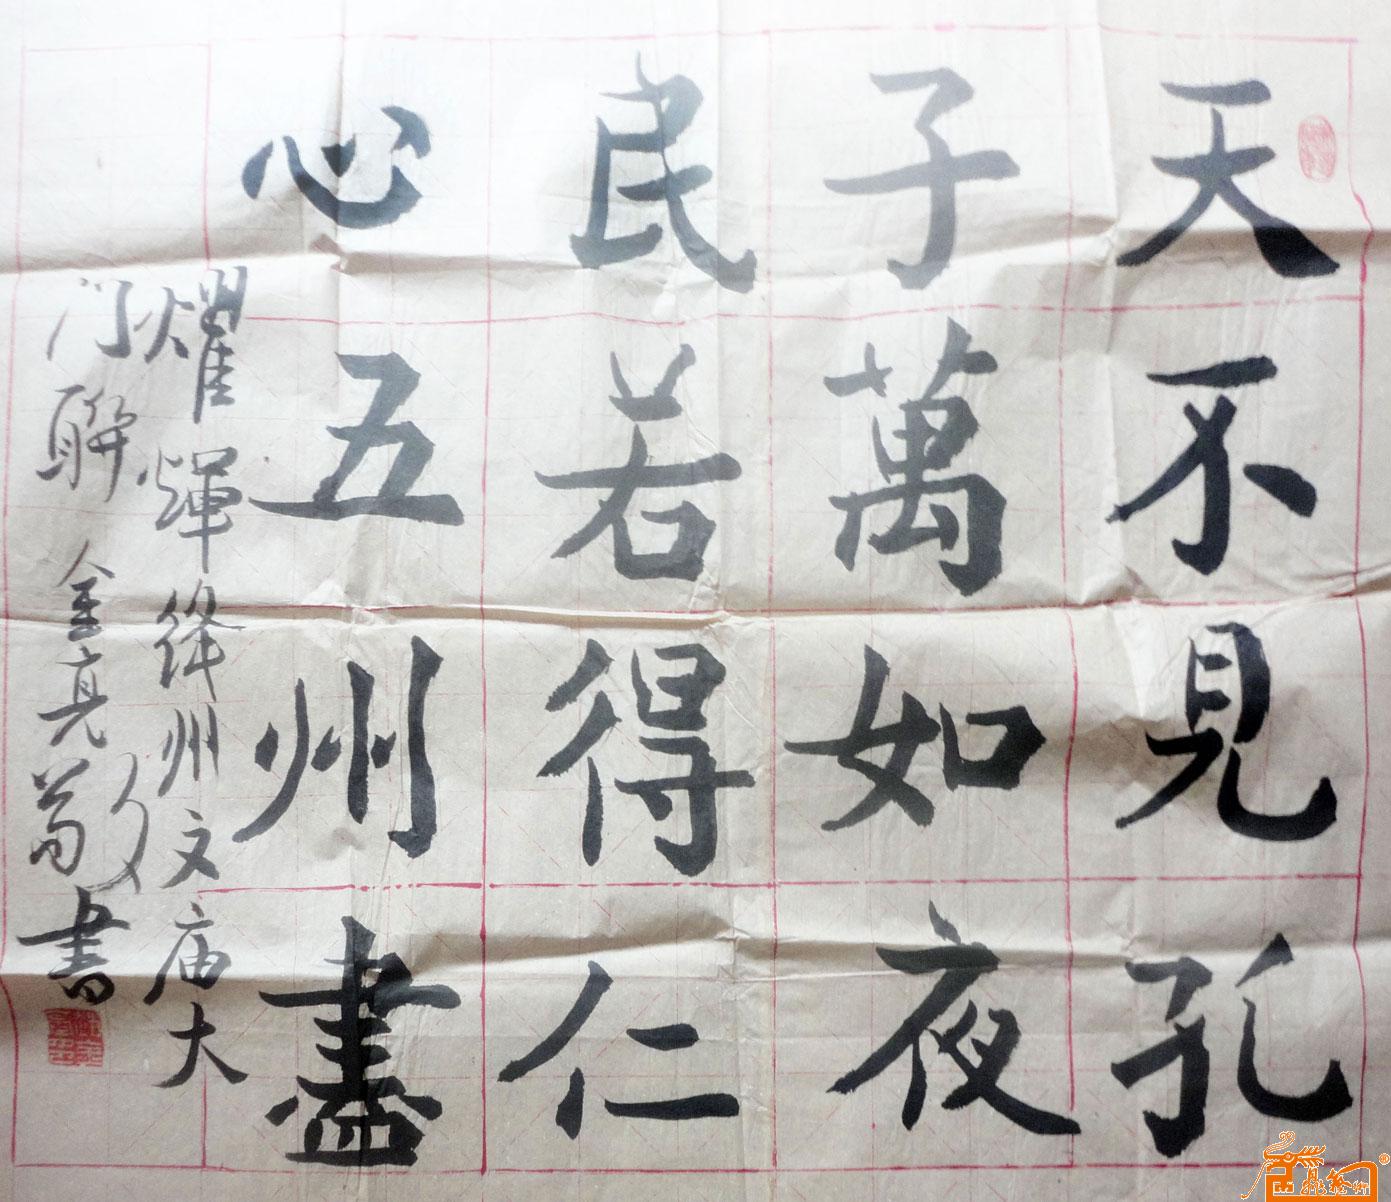 天不見孔
子萬如夜
民若得仁
心五州盡
燿輝絳州文庙大
门聯 金亮敬書